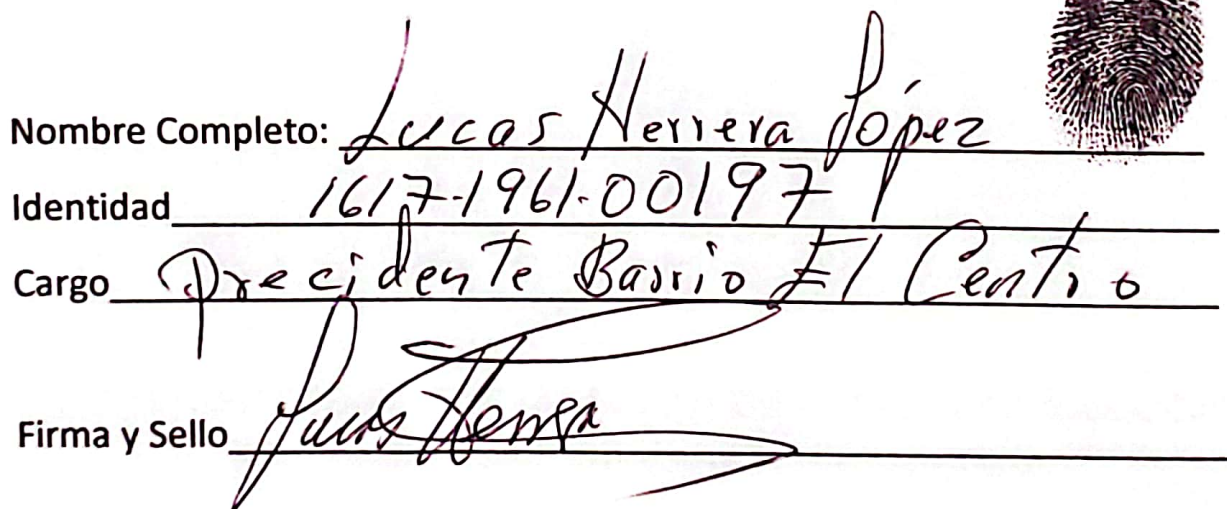 Nombre Completo: Lucas Herrera López
Identidad 1617-1961-00197
Cargo Precidente Barrio El Centro
Firma y Sello Lucas Herrera